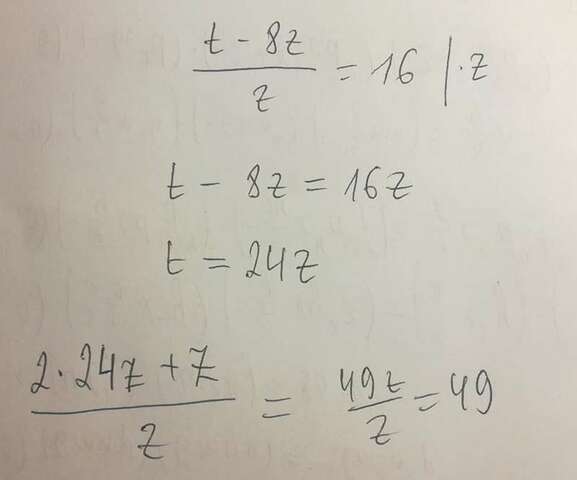 t - 8z
z
= 16 | · z
t - 8z = 16z
t = 24z
2 · 24z + z
z
= 49z
z
= 49